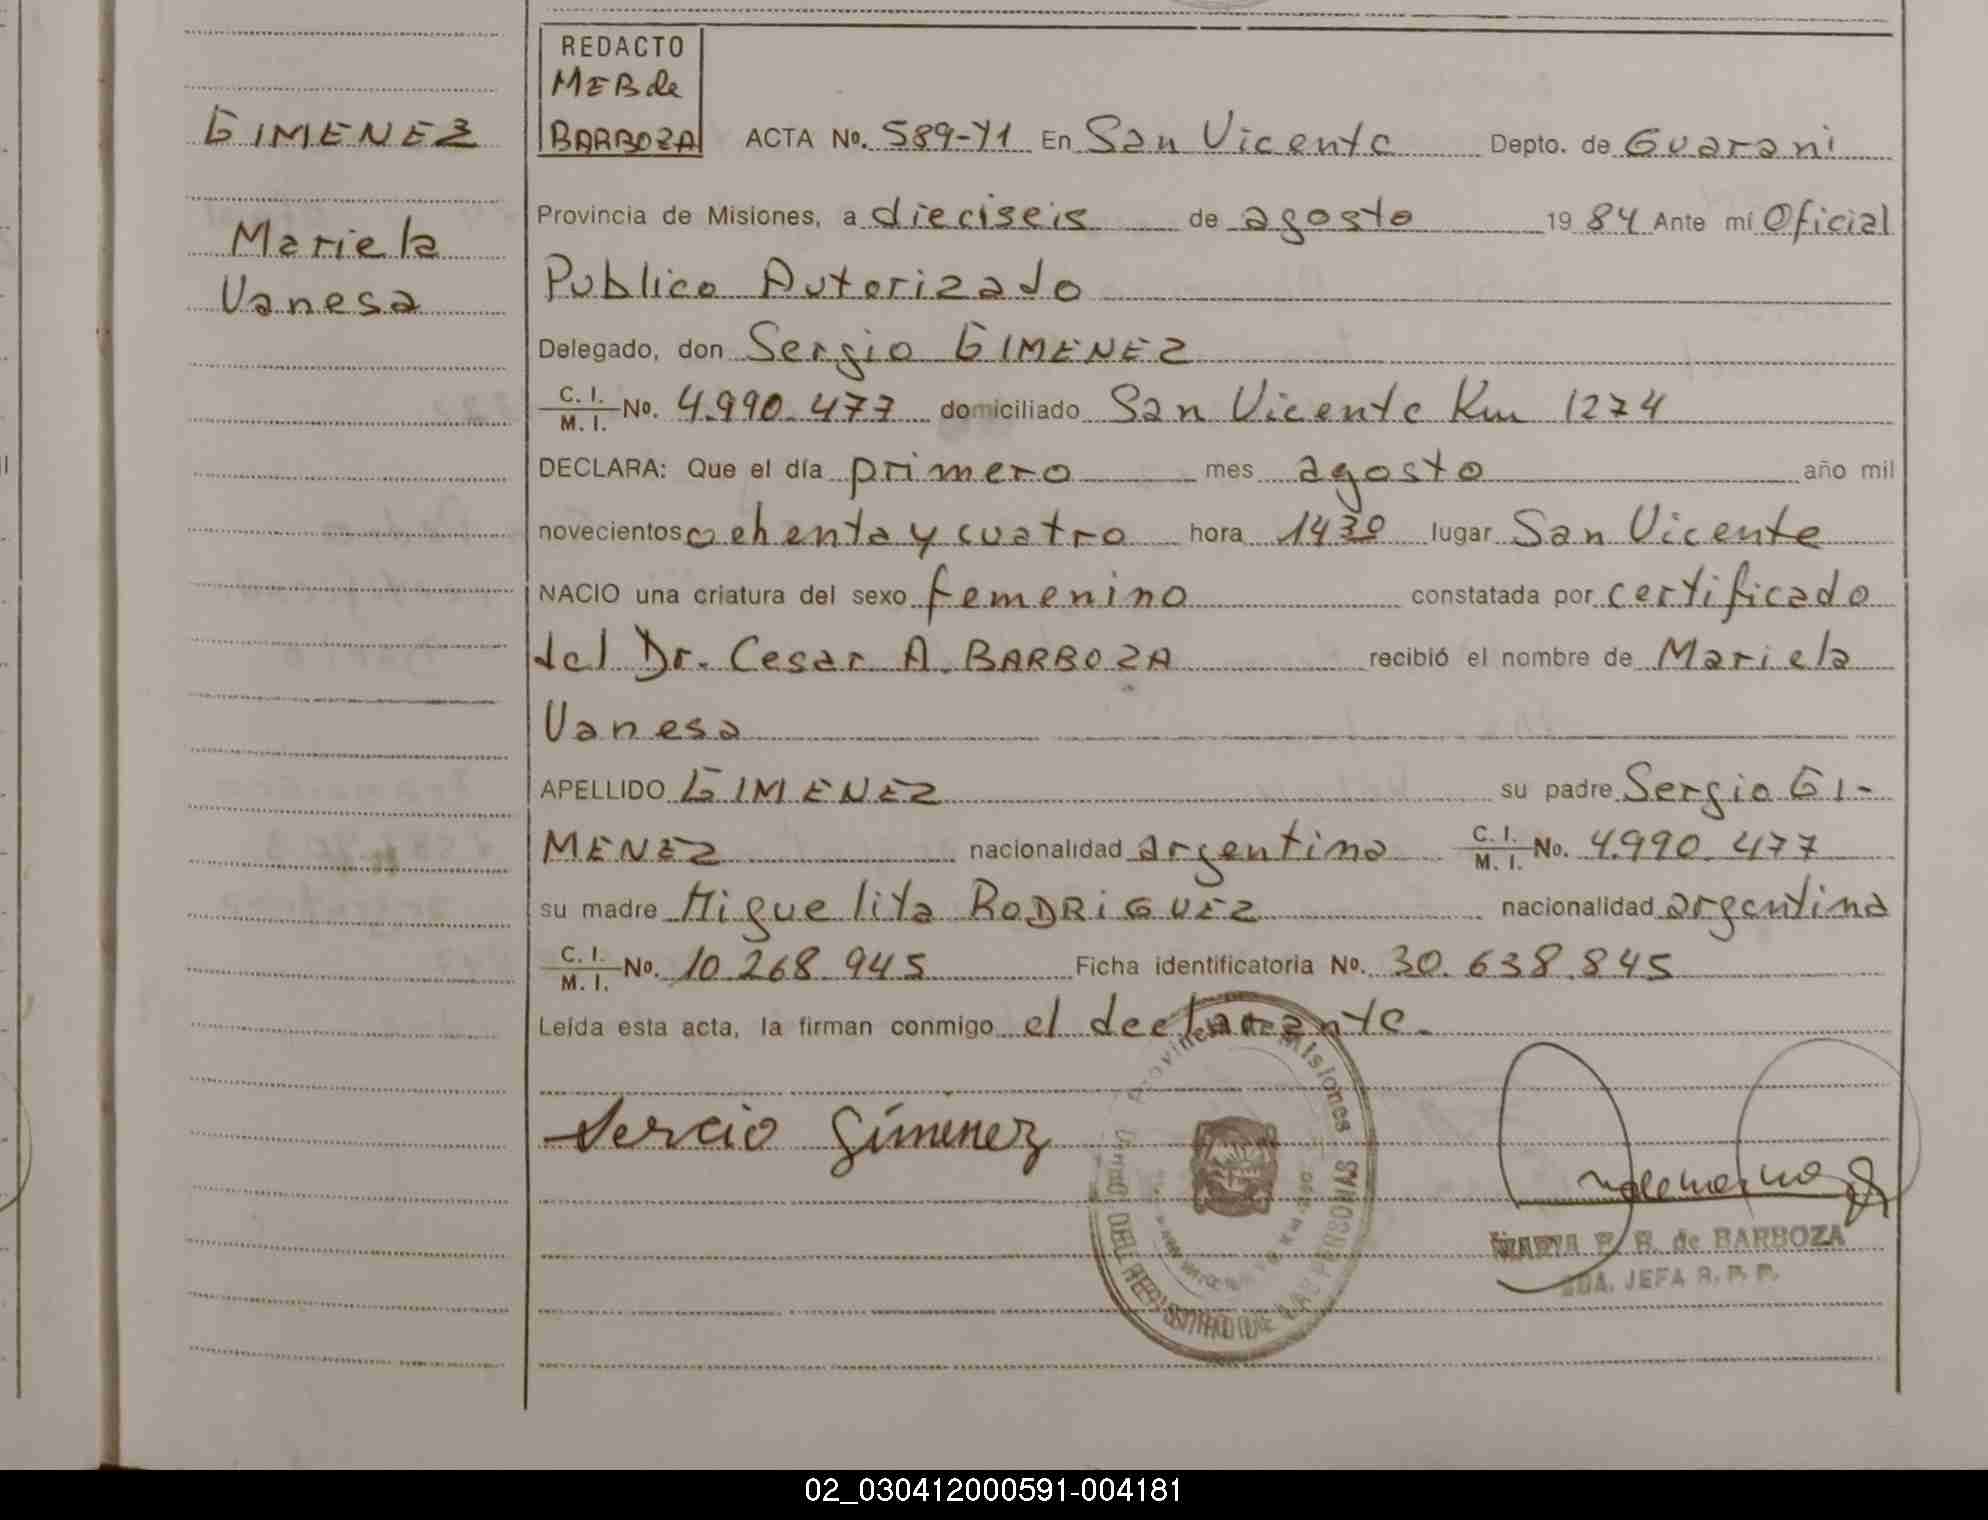 GIMENEZ
Mariela
Vanesa
REDACTO
MEB de
BARBOZA
ACTA No. 589-Y1 En San Vicente Depto. de Guarani
Provincia de Misiones, a dieciseis de agosto 19 84 Ante mí Oficial
Publico Autorizado
Delegado, don Sergio GIMENEZ
C. I. / M. I. No. 4.990.477 domiciliado San Vicente Km 1274
DECLARA: Que el día primero mes agosto año mil
novecientos ochenta y cuatro hora 1430 lugar San Vicente
NACIO una criatura del sexo femenino constatada por certificado
del Dr. Cesar A. BARBOZA recibió el nombre de Mariela
Vanesa
APELLIDO GIMENEZ su padre Sergio GI-
MENEZ nacionalidad argentino C. I. / M. I. No. 4.990.477
su madre Miguelita RODRIGUEZ nacionalidad argentina
C. I. / M. I. No. 10.268.945 Ficha identificatoria No. 30.638.845
Leída esta acta, la firman conmigo el declarante.
Provincia de Misiones
Sercio Gimenez
MARIA E. B. de BARBOZA
2DA. JEFA R. P. P.
02_030412000591-004181